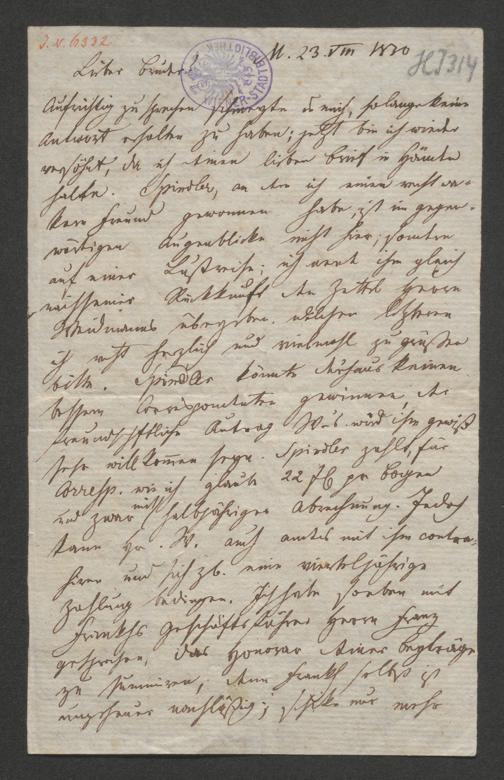 J. N. 6332
HJ314
WIENER STADTBIBLIOTHEK
M. 23. VIII 1830
Lieber Bruder!
Aufrichtig zu sprechen schmerzte es mich, so lange keine
Antwort erhalten zu haben; jetzt bin ich wieder
versöhnt, da ich deinen lieben Brief in Händen
halte. Spindler, an dem ich einen recht wa-
kern Freund gewonnen habe, ist im gegen-
wärtigen Augenblicke nicht hier, sondern
auf einer Lustreise; ich werde ihm gleich
nach seiner Rückkunft den Zettel Herrn
Weidmanns übergeben. welchen letztern
ich recht herzlich und vielmahl zu grüßen
bitte. Spindler könnte durchaus keinen
bessern Correspondenten gewinnen. Der
freundschftliche Antrag W-s wird ihm gewiß
sehr willkommen seyn. Spindler zahlt, für
Corresp. wie ich glaube 22 f pr Bogen
und zwar nicht halbjähriger Abrechnung. Jedoch
kann Hr. W. auch anders mit ihm contra-
hiren und sich zb. eine vierteljährige
Zahlung bedingen. Ich habe soeben mit
Frankhs Geschäftsführer Herrn Franz
gesprochen, das Honorar deiner Beyträge
zu summiren, denn Frankh selbst ist
ungeheuer nachläßig; schicke nur mehr